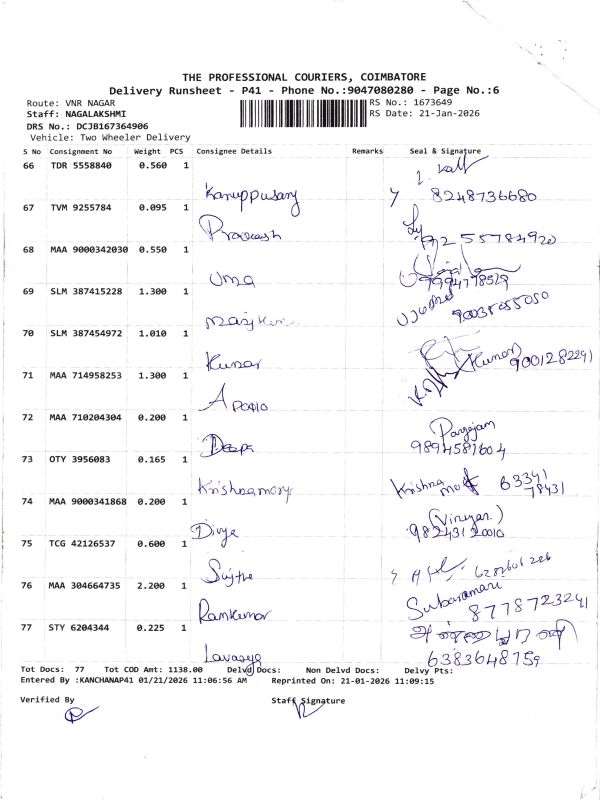 THE PROFESSIONAL COURIERS, COIMBATORE
Delivery Runsheet - P41 - Phone No.:9047080280 - Page No.:6
Route: VNR NAGAR RS No.: 1673649
Staff: NAGALAKSHMI RS Date: 21-Jan-2026
DRS No.: DCJB167364906
Vehicle: Two Wheeler Delivery
S No Consignment No Weight PCS Consignee Details Remarks Seal & Signature
66 TDR 5558840 0.560 1
Karuppusamy 8248736680
67 TVM 9255784 0.095 1
Prakash
68 MAA 9000342030 0.550 1
Uma
69 SLM 387415228 1.300 1
70 SLM 387454972 1.010 1
Kumar Kumar 9001282291
71 MAA 714958253 1.300 1
Apollo
72 MAA 710204304 0.200 1
Deepa 9894581604
73 OTY 3956083 0.165 1
Krishnamory Krishna 63341
78431
74 MAA 9000341868 0.200 1
Divya 98243120010
75 TCG 42126537 0.600 1
76 MAA 304664735 2.200 1
Ramkumar 8778723241
77 STY 6204344 0.225 1
6383648759
Tot Docs: 77 Tot COD Amt: 1138.00 Delvd Docs: Non Delvd Docs: Delvy Pts:
Entered By :KANCHANAP41 01/21/2026 11:06:56 AM Reprinted On: 21-01-2026 11:09:15
Verified By Staff Signature